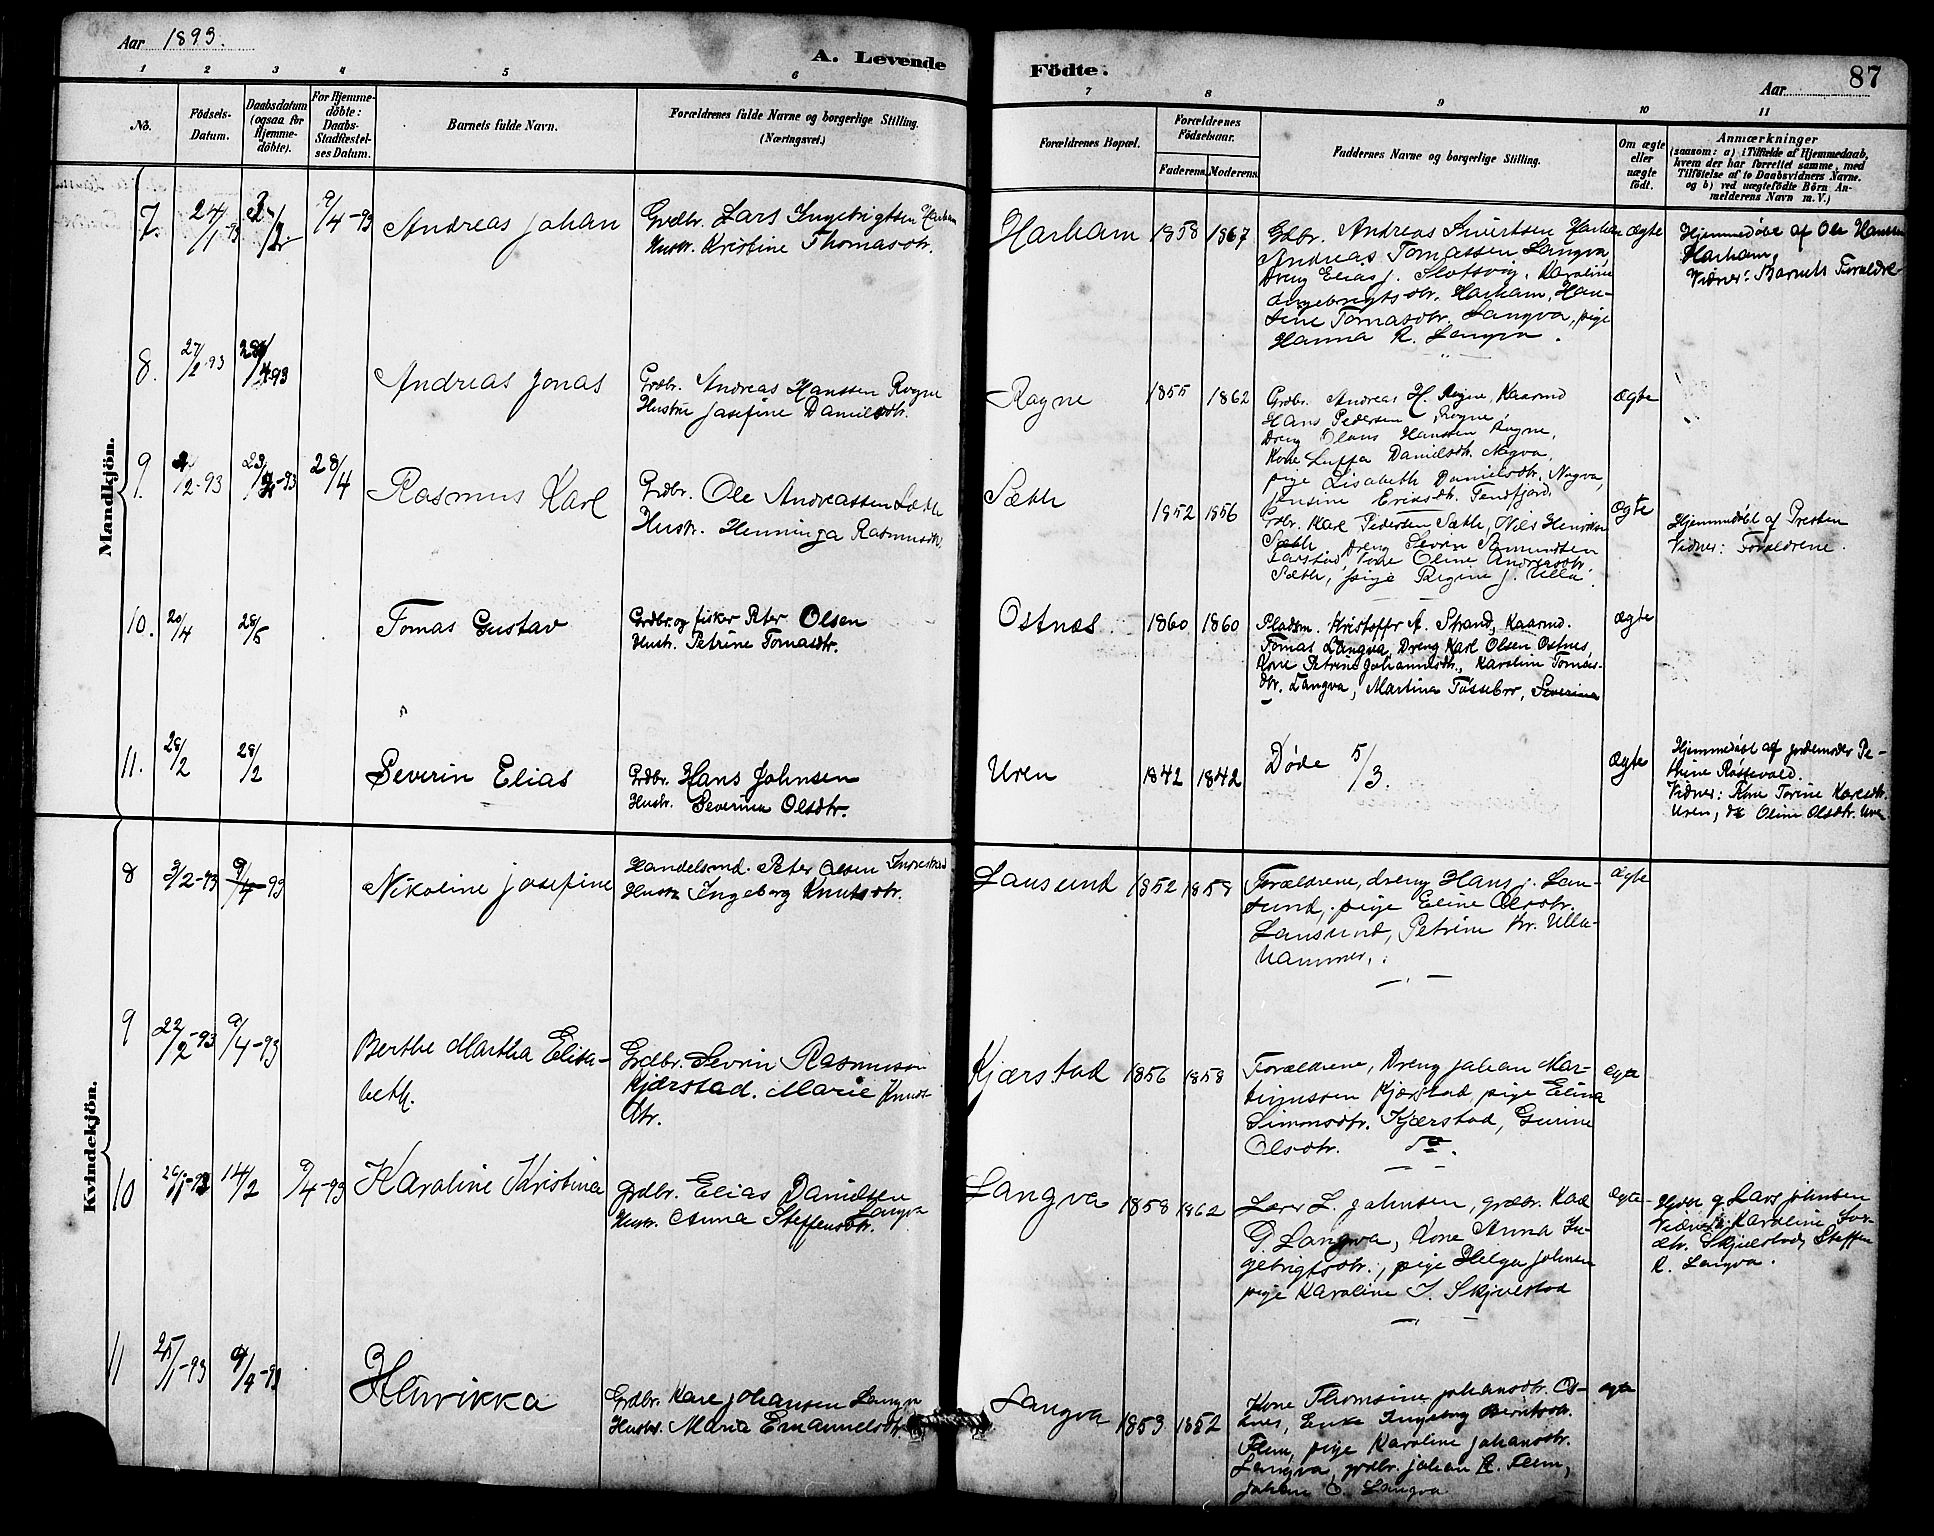 Aar 1893.
A. Levende
Födte.
Aar
87
1 2 3 4 5 6 7 8 9 10 11
No.
Födsels-
Datum.
Daabsdatum
(ogsaa for
Hjemme-
döbte).
For Hjemme-
döbte:
Daabs-
Stadfæstel-
ses Datum.
Barnets fulde Navn.
Forældrenes fulde Navne og borgerlige Stilling.
(Næringsvei.)
Forældrenes Bopæl.
Forældrenes
Födselsaar.
Faderens. Moderens.
Faddernes Navne og borgerlige Stilling.
Om ægte
eller
uægte
födt.
Anmærkninger
(saasom: a) i Tilfælde af Hjemmedaab,
hvem der har forrettet samme, med
Tilföielse af to Daabsvidners Navne.
og b) ved uægtefödte Börn An-
melderens Navn m. V.)
Mandkjön.
7. 24/1-93 9/4-93 Andreas Johan
Grdbr. Lars Ingebrigtsen Harham
Hustr. Kristine Thomasdtr.
Harham 1858 1867
Gdbr. Andreas Sivertsen Harham
Andreas Tomassen Langva
Dreng Elias J. Slotsvig, Karoline
Ingebrigtsdtr. Harham, Han-
sine Tomasdtr. Langva, pige
Hanna R. Langva.
ægte
Hjemmedøbt af Ole Hanssen
Harham.
Vidner: Barnets Forældre
8. 27/2-93 Andreas Jonas
Grdbr. Andreas Hanssen Rogne
Hustru Josefine Danielsdtr.
Rogne 1855 1862
Grdbr. Andreas H. Rogne, Kaarmd
Hans Pedersen Rogne,
Dreng Olaus Hanssen Rogne,
Kone Danielsdtr. Nogva,
pige Lisabeth Danielsdtr. Nogva,
Jensine Eriksdtr. Tendfjord.
Ægte
9. 28/4 Rasmus Karl
Grdbr. Ole Andreassen Sæth
Hustr. Henninga Rasmusdtr.
Sæth 1852 1856
Grdbr. Karl Pedersen Sæth, Nils Henriksen
Sæth, Dreng Sevrin Amundsen
Kone Oline Andersdtr.
Sæth, pige Regine J. Ulla.
Ægte
Hjemmedøbt af Presten
Vidner: Forældrene.
10. 20/4 28/5 Tomas Gustav
Grdbr. og fisker Peter Olsen
Hustr. Petrine Tomasdtr.
Ostnes 1860 1860
Pladsm. Kristoffer A. Strand, Kaarmd.
Tomas Langva, Dreng Karl Olsen Ostnes,
Kone Petrine Johannesdtr., Karoline Tomas-
dtr. Langva, Martina Tøssebro, Severina
ægte
11. 28/2 28/2 Severin Elias
Grdbr. Hans Johnsen
Hustr. Severina Olsdtr.
Uren 1842 1842
Døde 5/3.
ægte
Hjemmedøbt af jordemoder Pe-
thine Røssevold.
Vidner: Kone Torine Karlsdtr.
Uren, do Oline Olsdtr. Uren
Kvindekjön.
8 3/2-93 9/4-93 Nikoline Josefine
Handelsmd. Peter Olsen
Hustr Ingeborg Knutsdtr.
Lausund 1852 1858
Forældrene, dreng Hans J. Lau-
sund, pige Eline Olsdtr.
Lausund, Petrine Kr. Ulla-
hammer.
ægte
9 22/2-93 9/4-93 Berthe Martha Elisa-
beth.
Grdbr. Sevrin Rasmussen
Kjærstad. Marie Knuds-
dtr.
Kjærstad 1856 1858
Forældrene, Dreng Johan Mar-
tinussen Kjærstad, pige Elina
Simonsdtr. Kjærstad, Gurine
Olsdtr. do.
ægte
10 14/2 9/4-93 Karoline Kristina
Grdbr. Elias Davidsen
Langva
Hustr. Anna Steffensdtr.
Langva 1858 1862
Lærer L. Johnsen, grdbr. Karl
G. Langva, Kone Anna In-
gebrigtsdtr., pige Helga Johnsen
pige Karoline I. Skjelstad
ægte
Hjdbt af Lars Johnsen
Vidner: Karoline
dtr. Skjelstad, Steffen
R. Langva.
11 25/1-93 9/4-93 Henrikka
Grdbr. Karl Johansen Langva
Hustr. Maria Emanuelsdtr.
Langva 1853 1852
Kone Thomsine Johansdtr. Os-
tnes, Enke Ingeborg Berntsdtr.
Flem, pige Karoline Johansdtr.
Langva, grdbr. Johan R. Flem,
Johan O. Langva
ægte